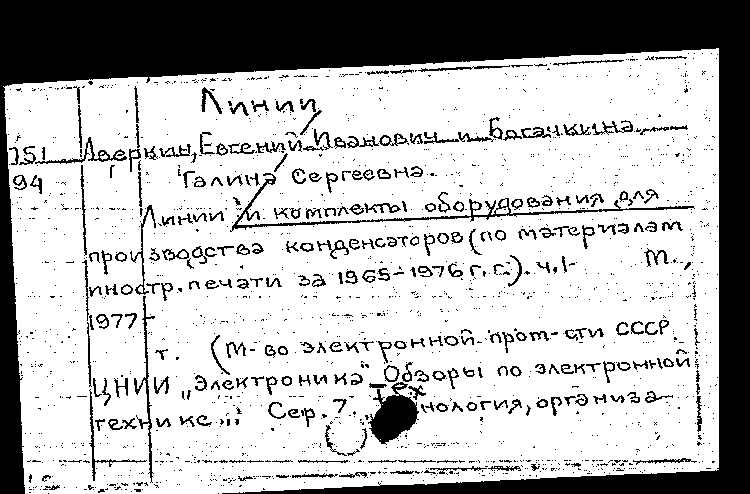 Линии
751 Аверкин, Евгений Иванович и Багачкина
94 Галина Сергеевна.
Линии и комплекты оборудования для
производства конденсаторов (по материалам
иностр. печати за 1965-1976 г. г.). ч. 1- М.,
1977-
т. (М-во электронной пром-сти СССР.
ЦНИИ „Электроника" Обзоры по электронной
технике„ Сер. 7. Технология, организа-